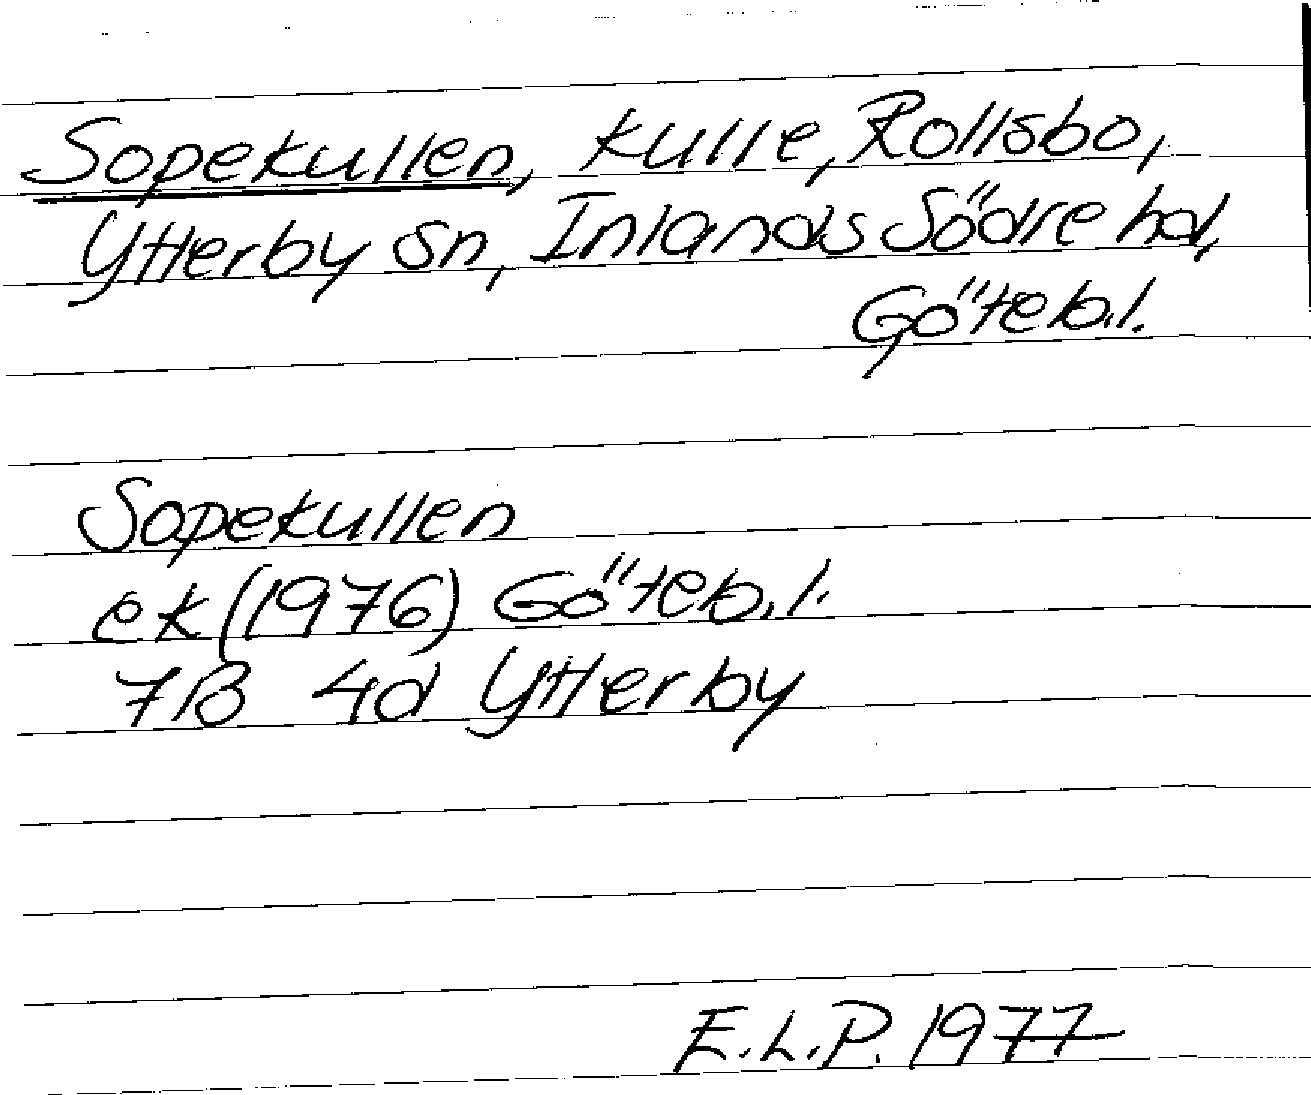 Sopekullen, kulle, Rollsbo,
Ytterby sn, Inlands Södre hd,
Göteb.l.
Sopekullen
ek (1976) Göteb.l.
7B 4d Ytterby
E.L.P. 1977